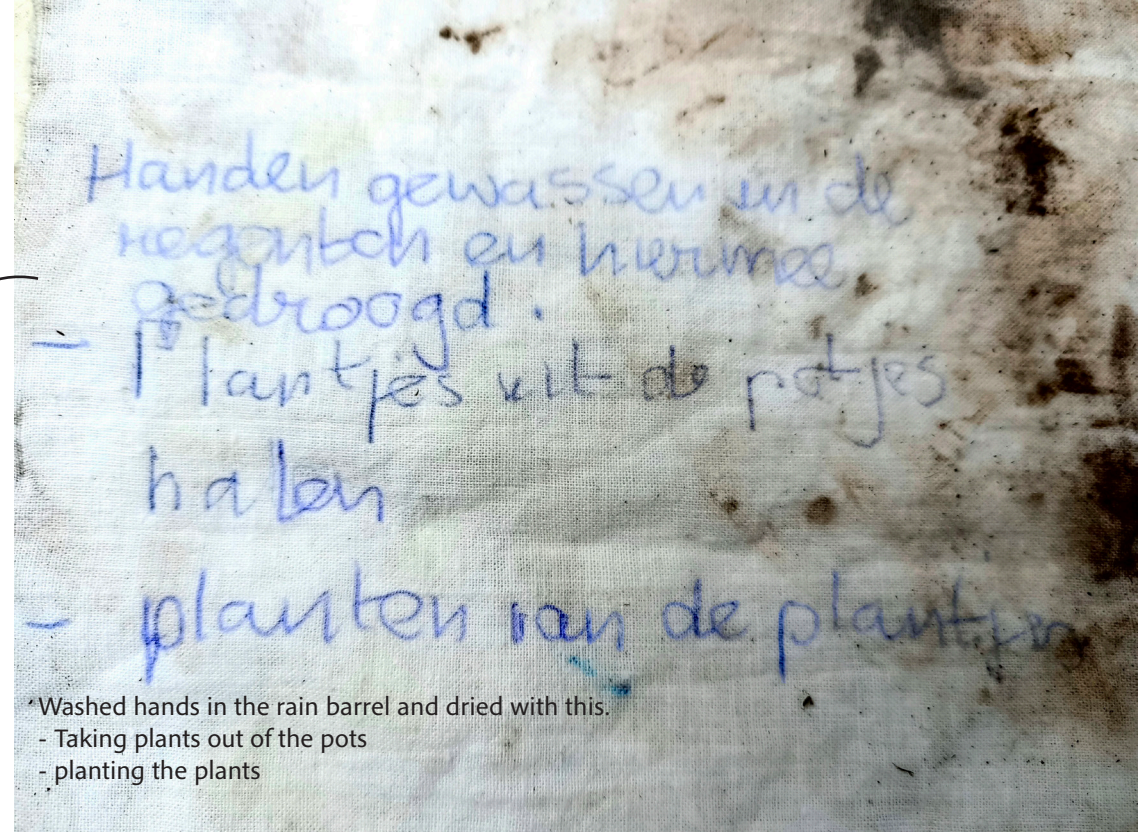 Handen gewassen in de
regenton en hiermee
gedroogd.
- Plantjes uit de potjes
halen
- planten van de plantjes
Washed hands in the rain barrel and dried with this.
- Taking plants out of the pots
- planting the plants